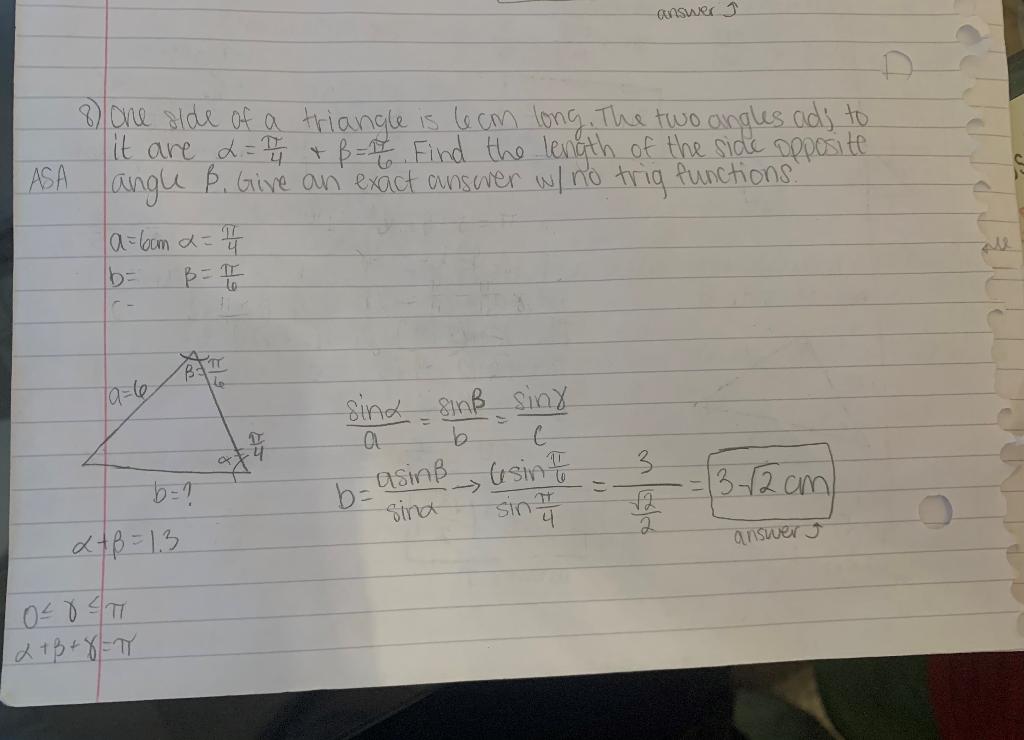 answer ↑
8) One side of a triangle is 6cm long. The two angles adj to
it are α = π/4 + β = π/6. Find the length of the side opposite
ASA angle β. Give an exact answer w/ no trig functions.
a=6cm α = π/4
b= β = π/6
c=
β = π/6
a=6
α π/4
b=?
sinα/a = sinβ/b = sinγ/c
b = asinβ/sinα → 6sin π/6 / sin π/4 = 3 / (√2/2) = 3√2 cm
answer ↑
α+β=1.3
0≤ γ ≤ π
α+β+γ=π